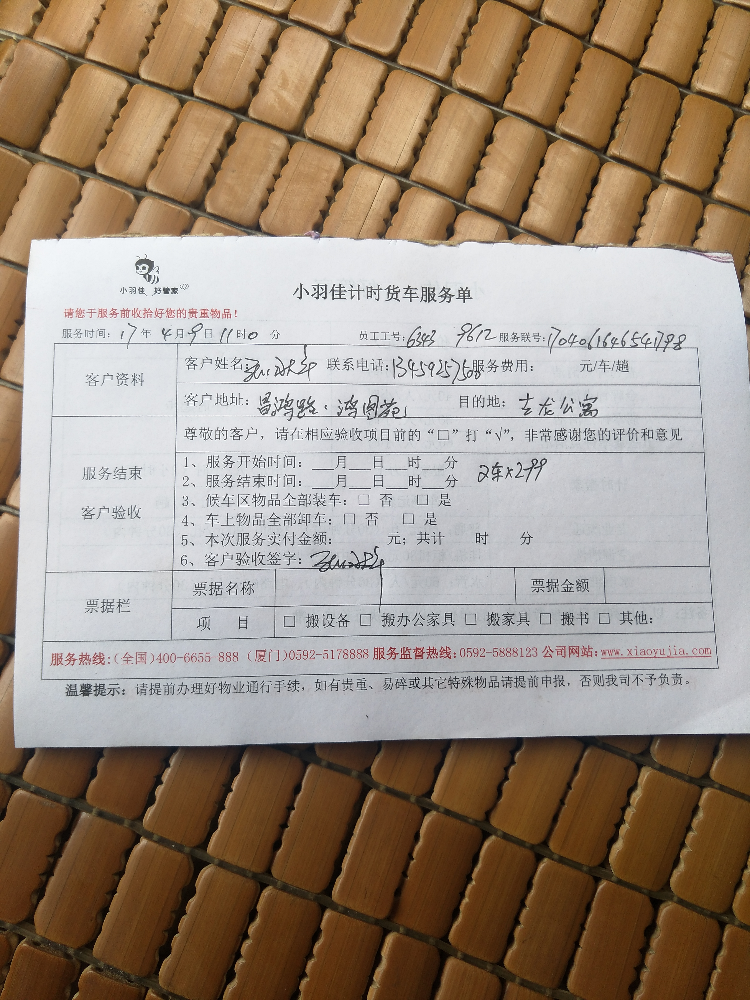 小羽佳 好管家
小羽佳计时货车服务单
请您于服务前收拾好您的贵重物品!
服务时间: 17 年 4 月 9 日 11 时 0 分 员工工号: 6343 9612 服务联号: 704061646541798
客户资料
客户姓名: 联系电话: 服务费用: 元/车/趟
客户地址: 昌鸿路·鸿图苑 目的地: 古龙公寓
尊敬的客户，请在相应验收项目前的“□”打“√”，非常感谢您的评价和意见
服务结束
客户验收
1、服务开始时间: __月__日__时__分
2、服务结束时间: __月__日__时__分 2车×299
3、候车区物品全部装车: □ 否 □ 是
4、车上物品全部卸车: □ 否 □ 是
5、本次服务实付金额: 元; 共计 时 分
6、客户验收签字:
票据栏
票据名称 票据金额
项 目 □ 搬设备 □ 搬办公家具 □ 搬家具 □ 搬书 □ 其他:
服务热线:(全国)400-6655 888 (厦门)0592-5178888 服务监督热线:0592-5888123 公司网站:www.xiaoyujia.com
温馨提示: 请提前办理好物业通行手续, 如有贵重、易碎或其它特殊物品请提前申报, 否则我司不予负责。